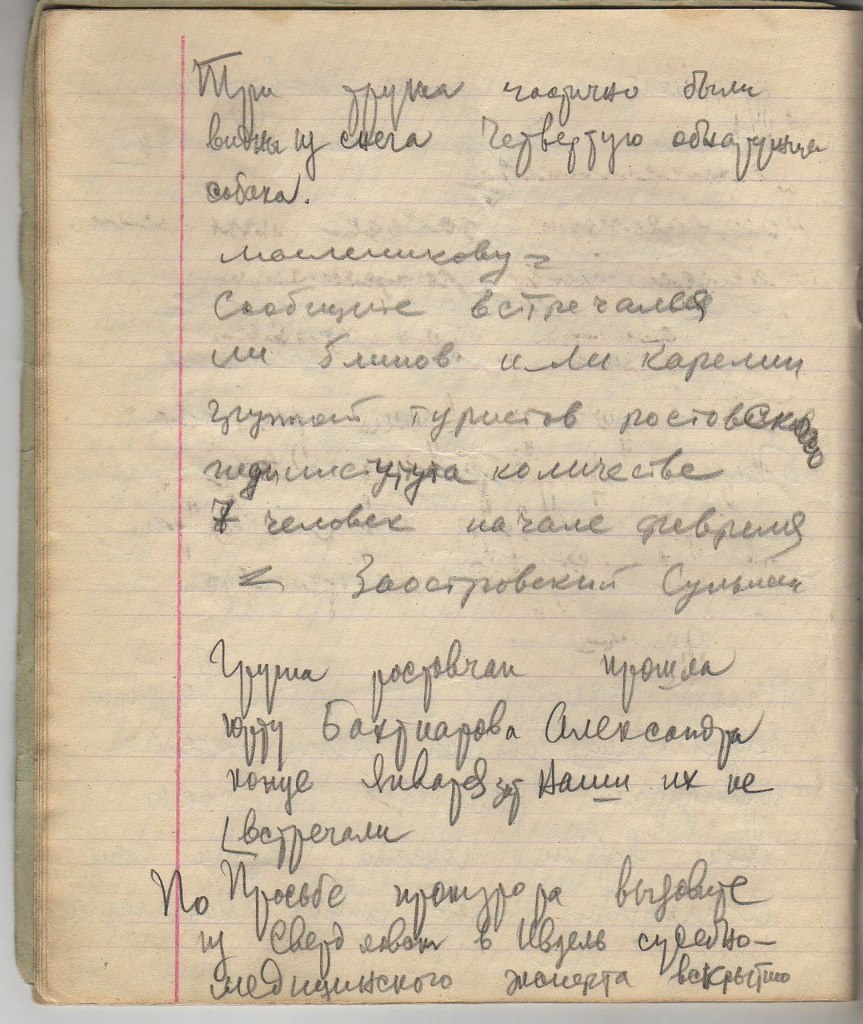 Три трупа частично были
видны из снега Четвертую обнаружила
собака.
Масленикову =
Сообщите встречался
ли блинов или Карелин
группой туристов ростовского
пединститута количестве
7 человек начале февраля
= Заостровский Сульман
Группа ростовчан прошла
юрту Бахтиарова Александра
конце января зпт Наши их не
встречали
По Просьбе прокурора вызовите
из Свердловска в Ивдель судебно-
медицинского эксперта вскрытию